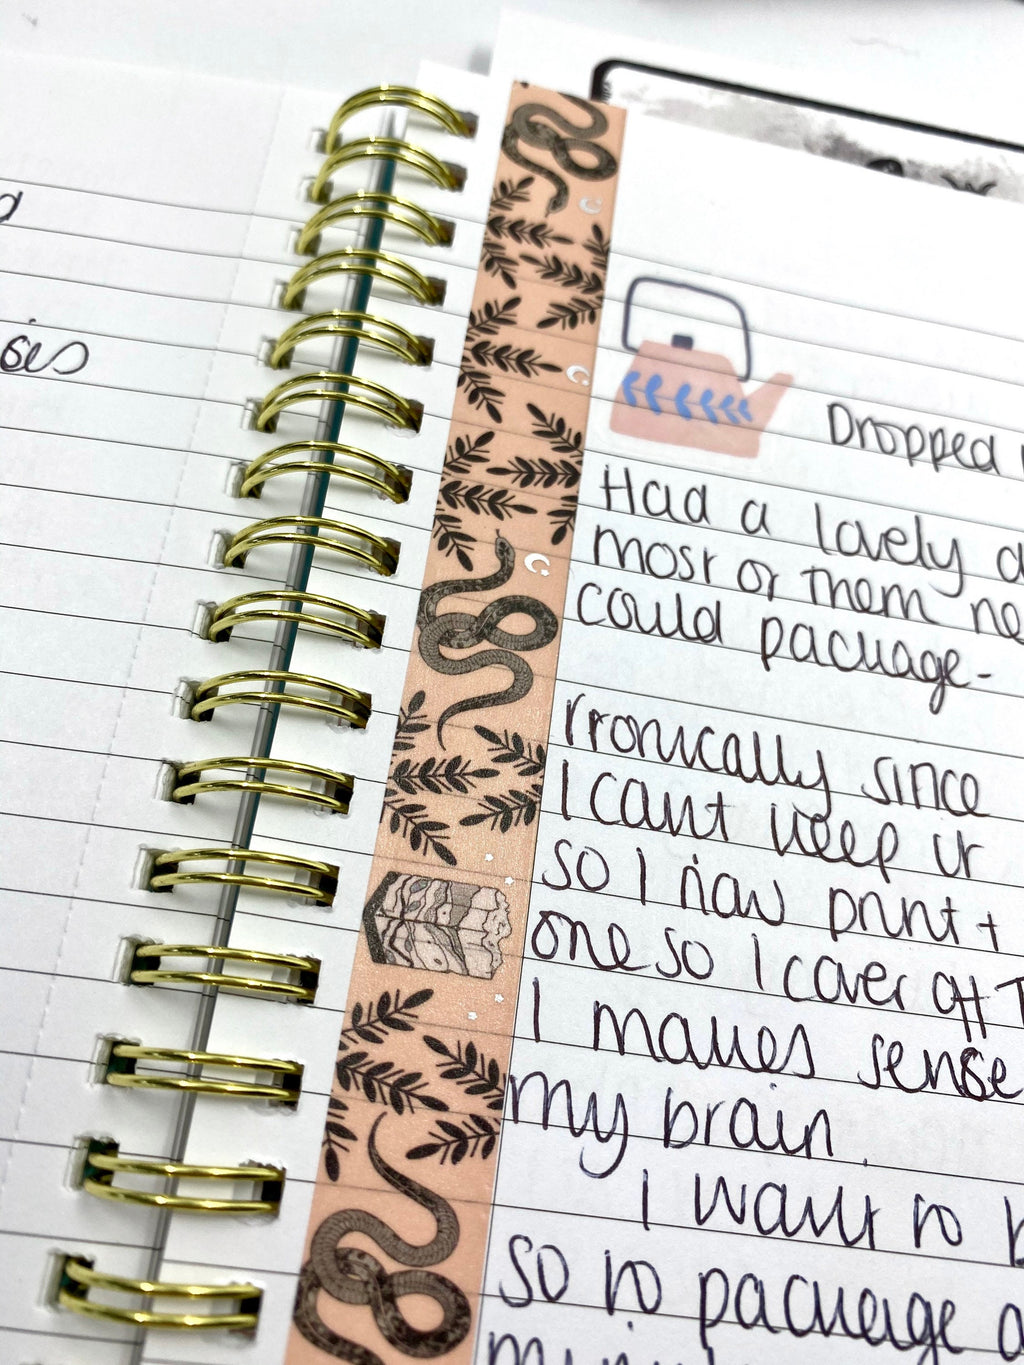 Dropped
Had a lovely
most of them ne
could package-
Irronically since
I cant keep
so I now print +
one so I cover off
I makes sense
my brain.
I want to
so to package a